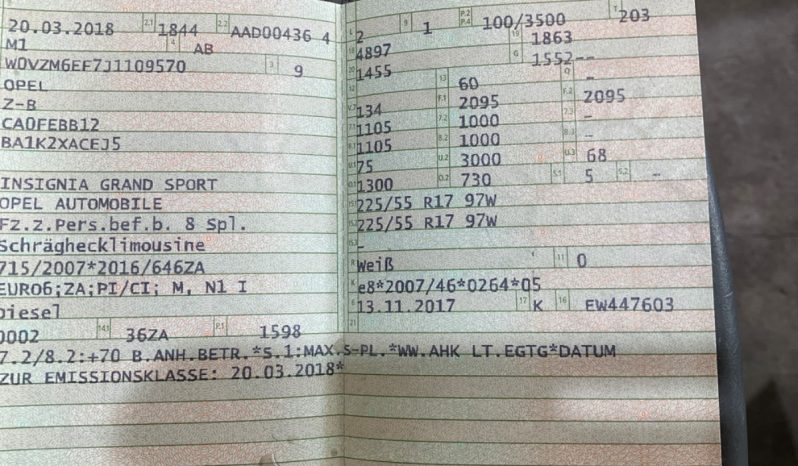 20.03.2018 2.1 1844 2.2 AAD00436 4
M1 4 AB
W0VZM6EF7J1109570 3 9
OPEL
Z-B
CA0FEBB12
BA1K2XACEJ5
INSIGNIA GRAND SPORT
OPEL AUTOMOBILE
Fz.z.Pers.bef.b. 8 Spl.
Schräghecklimousine
715/2007*2016/646ZA
EURO6;ZA;PI/CI; M, N1 I
Diesel
0002 14.1 36ZA P.1 1598
7.2/8.2:+70 B.ANH.BETR.*S.1:MAX.S-PL.*WW.AHK LT.EGTG*DATUM
ZUR EMISSIONSKLASSE: 20.03.2018*
L 2 9 1 P.2 P.4 100/3500 T 203
18 4897 19 1863
20 1455 G 1552--
12 - 13 60 Q -
V.7 134 F.1 2095 F.2 2095
7.1 1105 7.2 1000 7.3 -
8.1 1105 8.2 1000 8.3 -
U.1 75 U.2 3000 U.3 68
O.1 1300 O.2 730 S.1 5 S.2 -
15.1 225/55 R17 97W
15.2 225/55 R17 97W
15.3 -
R Weiß 11 0
K e8*2007/46*0264*05
6 13.11.2017 17 K 16 EW447603
21